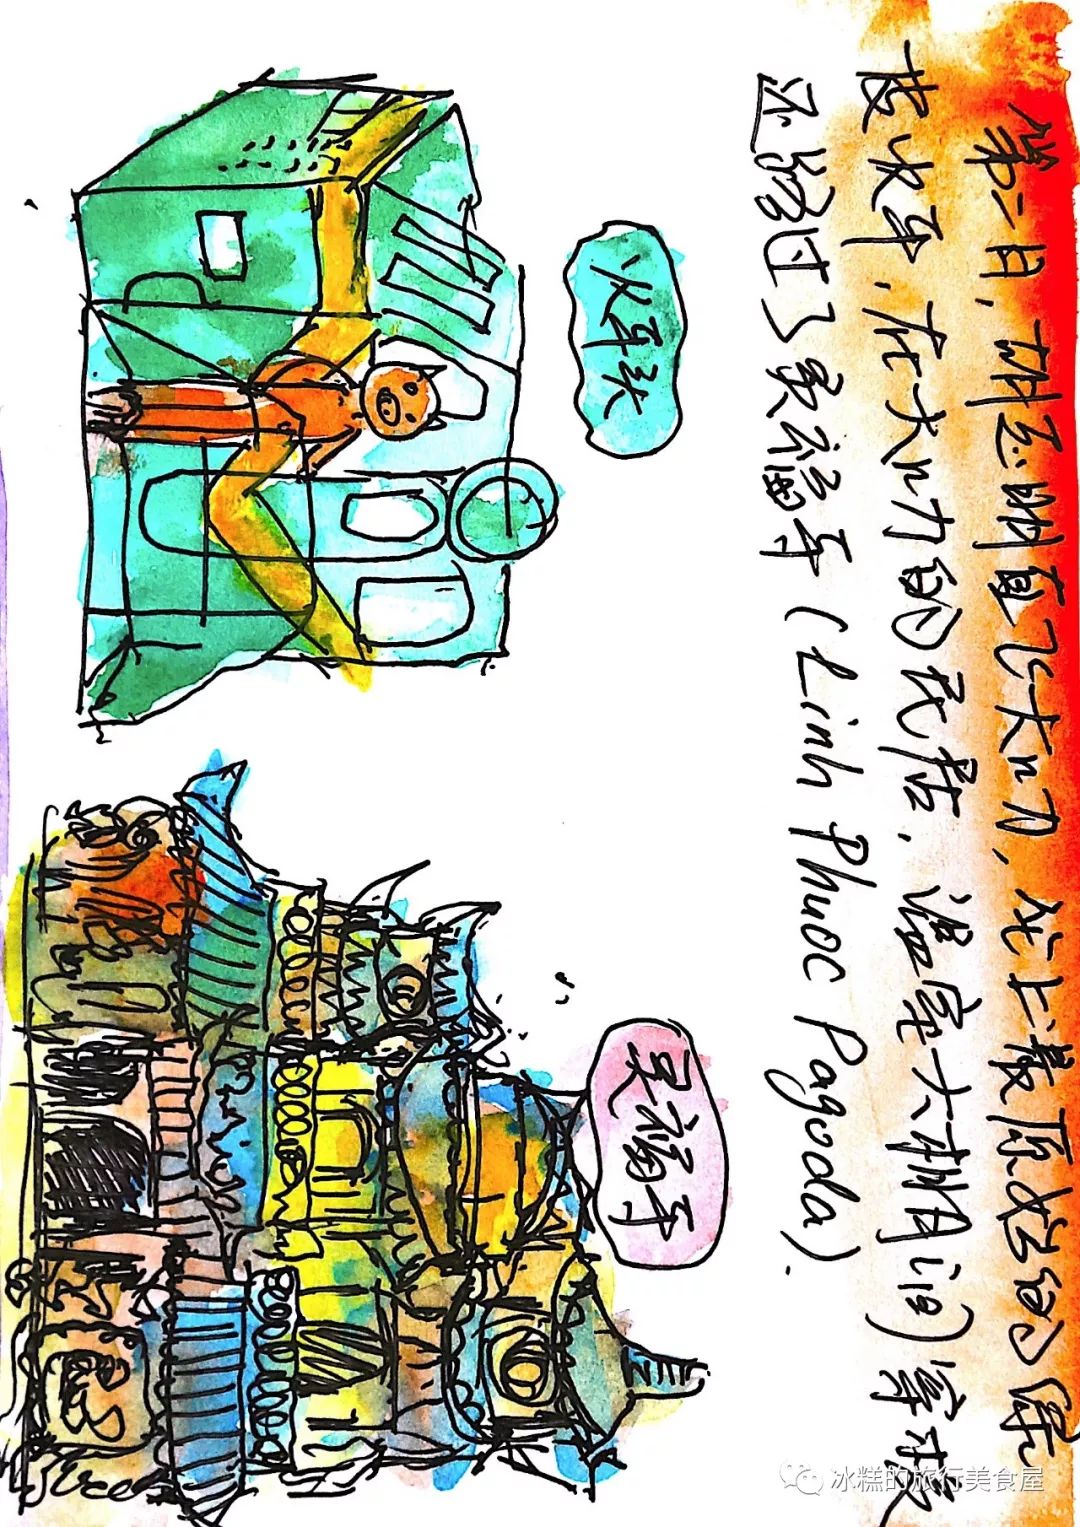 第二日，胡志明直飞大叻，坐上最原始的绿
皮火车，在大叻的民居，温室大棚穿梭
还路过了灵福寺 (Linh Phuoc Pagoda).
火车头
灵福寺
冰糕的旅行美食屋